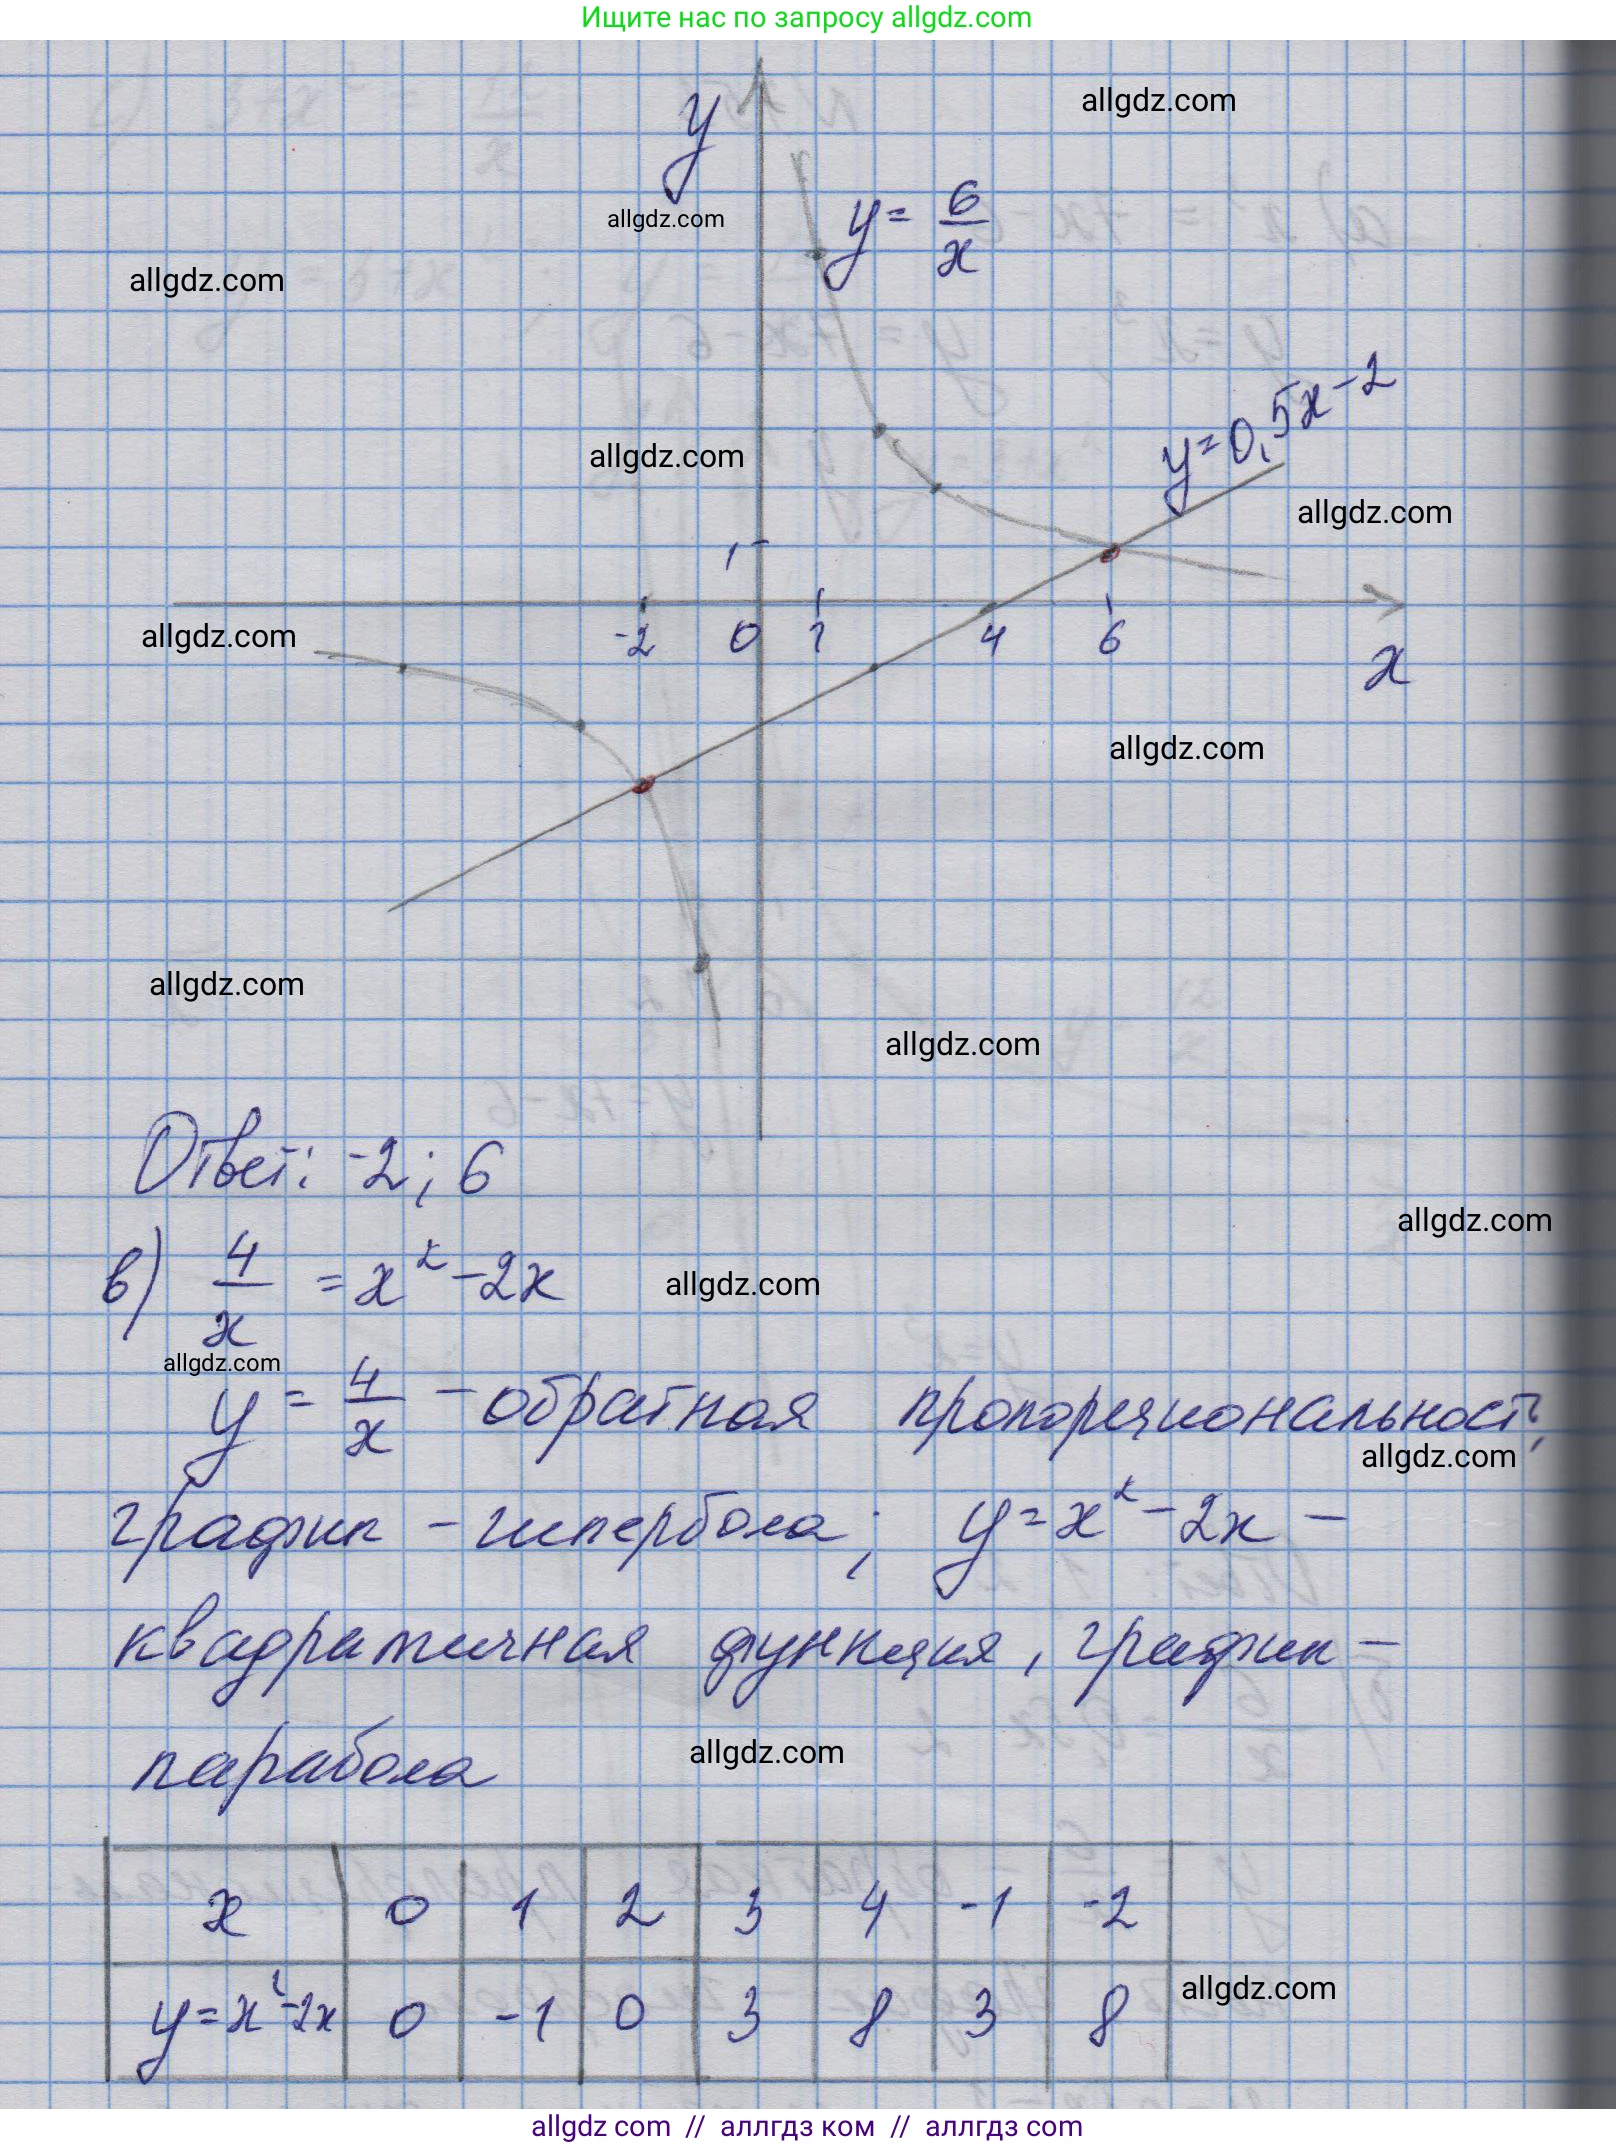 Ищите нас по запросу allgdz.com
allgdz.com
y
allgdz.com
y = 6/x
allgdz.com
y=0,5x-2
allgdz.com
allgdz.com
1
allgdz.com
-2 0 1 4 6
x
allgdz.com
allgdz.com
allgdz.com
Ответ: -2; 6
allgdz.com
в) 4/x = x² - 2x
allgdz.com
allgdz.com
y = 4/x - обратная пропорциональность,
allgdz.com
график - гипербола; y = x² - 2x -
квадратичная функция, график -
парабола
allgdz.com
x 0 1 2 3 4 -1 -2
y=x²-2x 0 -1 0 3 8 3 8
allgdz.com
allgdz com // аллгдз ком // аллгдз com